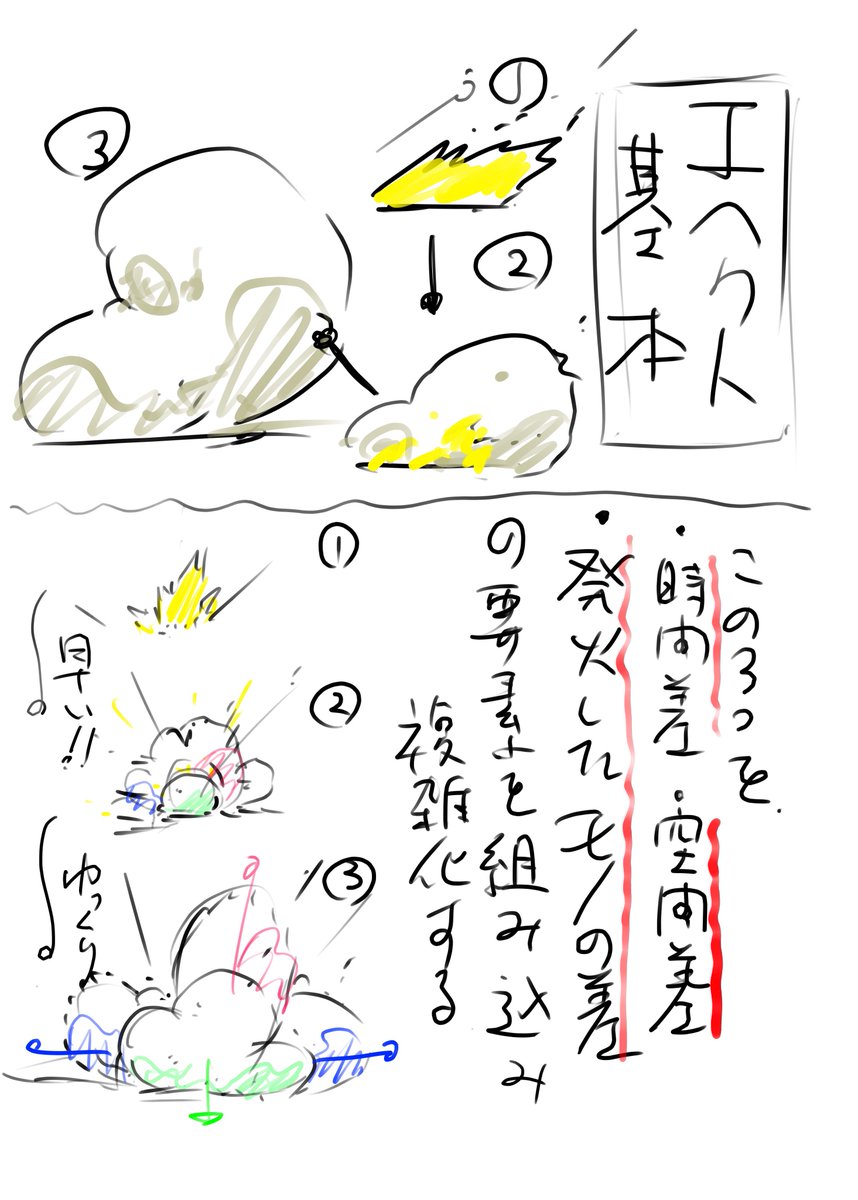 エヘクト
基本
①
②
③
この3つを、
・時間差・空間差
・発火したモノの差
の要素を組み込み
複雑化する
①
②
③
早い!!
ゆっくり